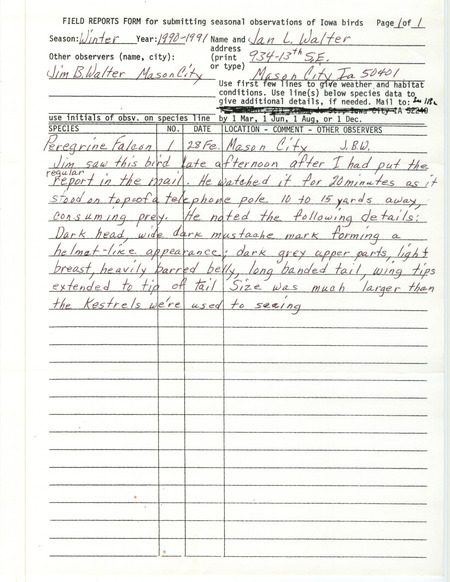 FIELD REPORTS FORM for submitting seasonal observations of Iowa birds Page 1 of 1
Season: Winter Year: 1990-1991 Name and Jan L. Walter
address
Other observers (name, city): (print 934-13th S.E.
Jim B. Walter Mason City or type) Mason City Ia 50401
Use first few lines to give weather and habitat
conditions. Use line(s) below species data to
give additional details, if needed. Mail to:
use initials of obsv. on species line by 1 Mar, 1 Jun, 1 Aug, or 1 Dec.
SPECIES NO. DATE LOCATION - COMMENT - OTHER OBSERVERS
Peregrine Falcon 1 28 Fe. Mason City J.B.W.
Jim saw this bird late afternoon after I had put the
regular
report in the mail. He watched it for 20 minutes as it
stood on top of a telephone pole 10 to 15 yards away,
consuming prey. He noted the following details:
Dark head, wide dark mustache mark forming a
helmet-like appearance; dark grey upper parts, light
breast, heavily barred belly, long banded tail, wing tips
extended to tip of tail Size was much larger than
the Kestrels we're used to seeing